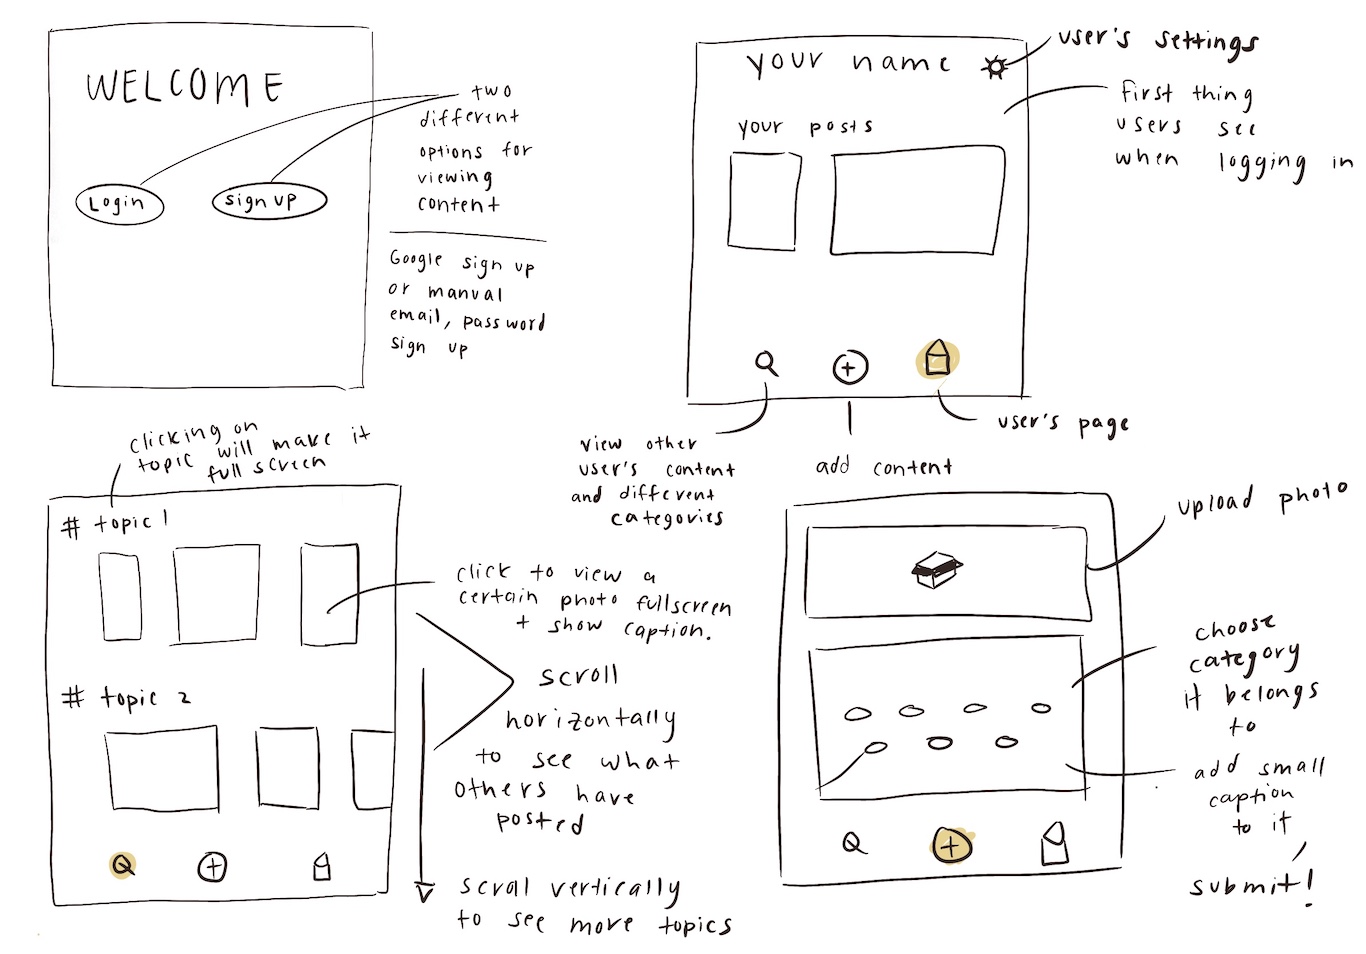 WELCOME
Login
sign up
two
different
options for
viewing
content
Google sign up
or manual
email, password
sign up
your name
user's settings
your posts
first thing
users see
when logging in
view other
user's content
and different
categories
add content
user's page
clicking on
topic will make it
full screen
# topic 1
click to view a
certain photo fullscreen
+ show caption.
# topic 2
scroll
horizontally
to see what
others have
posted
scroll vertically
to see more topics
upload photo
choose
category
it belongs
to
add small
caption
to it
submit!